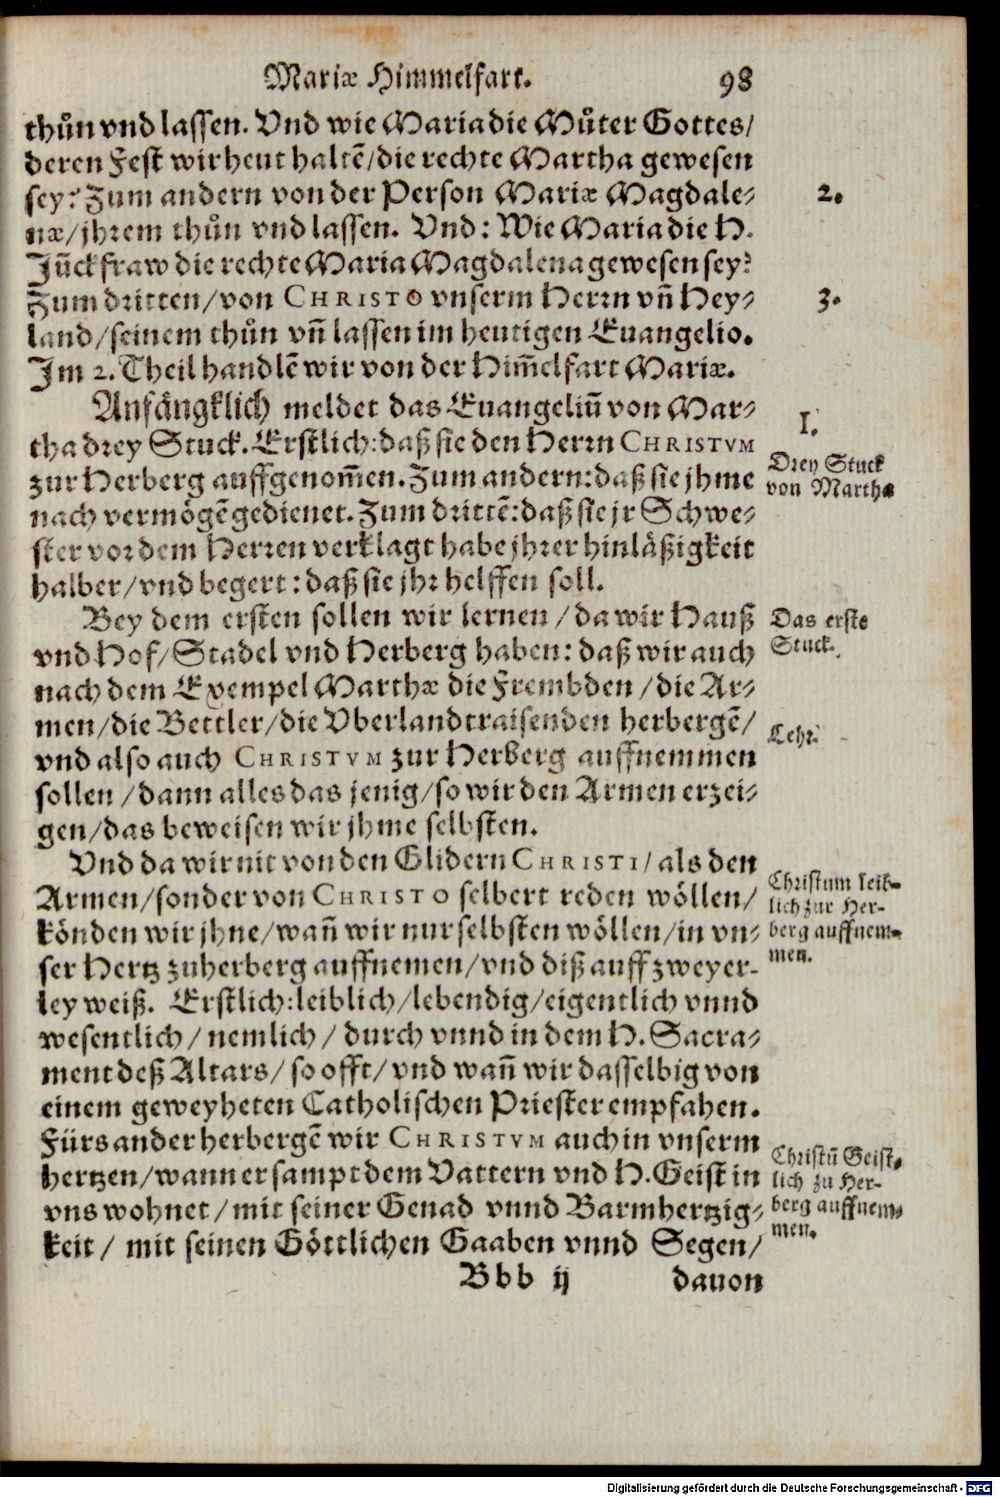 Mariæ Himmelfart. 98
thůn vnd lassen. Vnd wie Maria die Můter Gottes/
deren Fest wir heut haltē/die rechte Martha gewesen
sey? Zum andern von der Person Mariæ Magdale-
næ/jhrem thůn vnd lassen. Vnd: Wie Maria die H.
Jūckfraw die rechte Maria Magdalena gewesen sey?
Zum dritten/von CHRISTO vnserm Herrn vñ Hey-
land/seinem thůn vñ lassen im heutigen Euangelio.
Im 2. Theil handlē wir von der Him̄elfart Mariæ.
2.
3.
Anfängklich meldet das Euangeliū von Mar-
tha drey Stuck. Erstlich: daß sie den Herrn CHRISTVM
zur Herberg auffgenom̄en. Zum andern: daß sie jhme
nach vermögē gedienet. Zum drittē: daß sie jr Schwe-
ster vor dem Herren verklagt habe jhrer hinläßigkeit
halber/vnd begert: daß sie jhr helffen soll.
I.
Drey Stuck
von Martha
Bey dem ersten sollen wir lernen/da wir Hauß
vnd Hof/Stadel vnd Herberg haben: daß wir auch
nach dem Exempel Marthæ die Frembden/die Ar-
men/die Bettler/die Vberlandtraisenden herbergē/
vnd also auch CHRISTVM zur Herberg auffnemmen
sollen/dann alles das jenig/so wir den Armen erzei-
gen/das beweisen wir jhme selbsten.
Das erste
Stuck.
Lehr.
Vnd da wir nit von den Glidern CHRISTI/als den
Armen/sonder von CHRISTO selbert reden wöllen/
könden wir jhne/wañ wir nur selbsten wöllen/in vn-
ser Hertz zuherberg auffnemen/vnd diß auff zweyer-
ley weiß. Erstlich: leiblich/lebendig/eigentlich vnnd
wesentlich/nemlich/durch vnnd in dem H. Sacra-
ment deß Altars/so offt/vnd wañ wir dasselbig von
einem geweyheten Catholischen Priester empfahen.
Fürs ander herbergē wir CHRISTVM auch in vnserm
hertzen/wann er sampt dem Vattern vnd H. Geist in
vns wohnet/mit seiner Genad vnnd Barmhertzig-
keit/mit seinen Göttlichen Gaaben vnnd Segen/
Christum leib-
lich zur Her-
berg auffnem-
men.
Christū Geist-
lich zu Her-
berg auffnem-
men.
Bbb ij davon
Digitalisierung gefördert durch die Deutsche Forschungsgemeinschaft - DFG